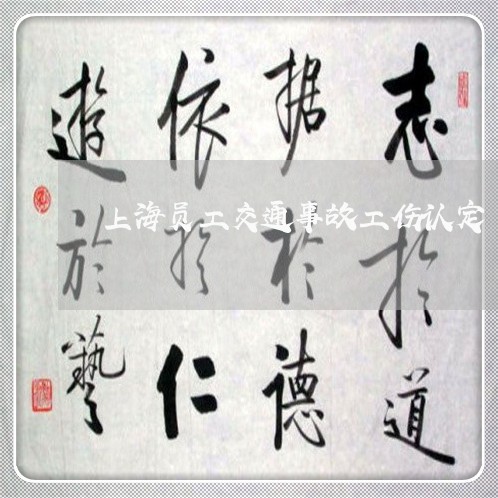 志於道
据於德
依於仁
遊於藝
上海员工交通事故工伤认定